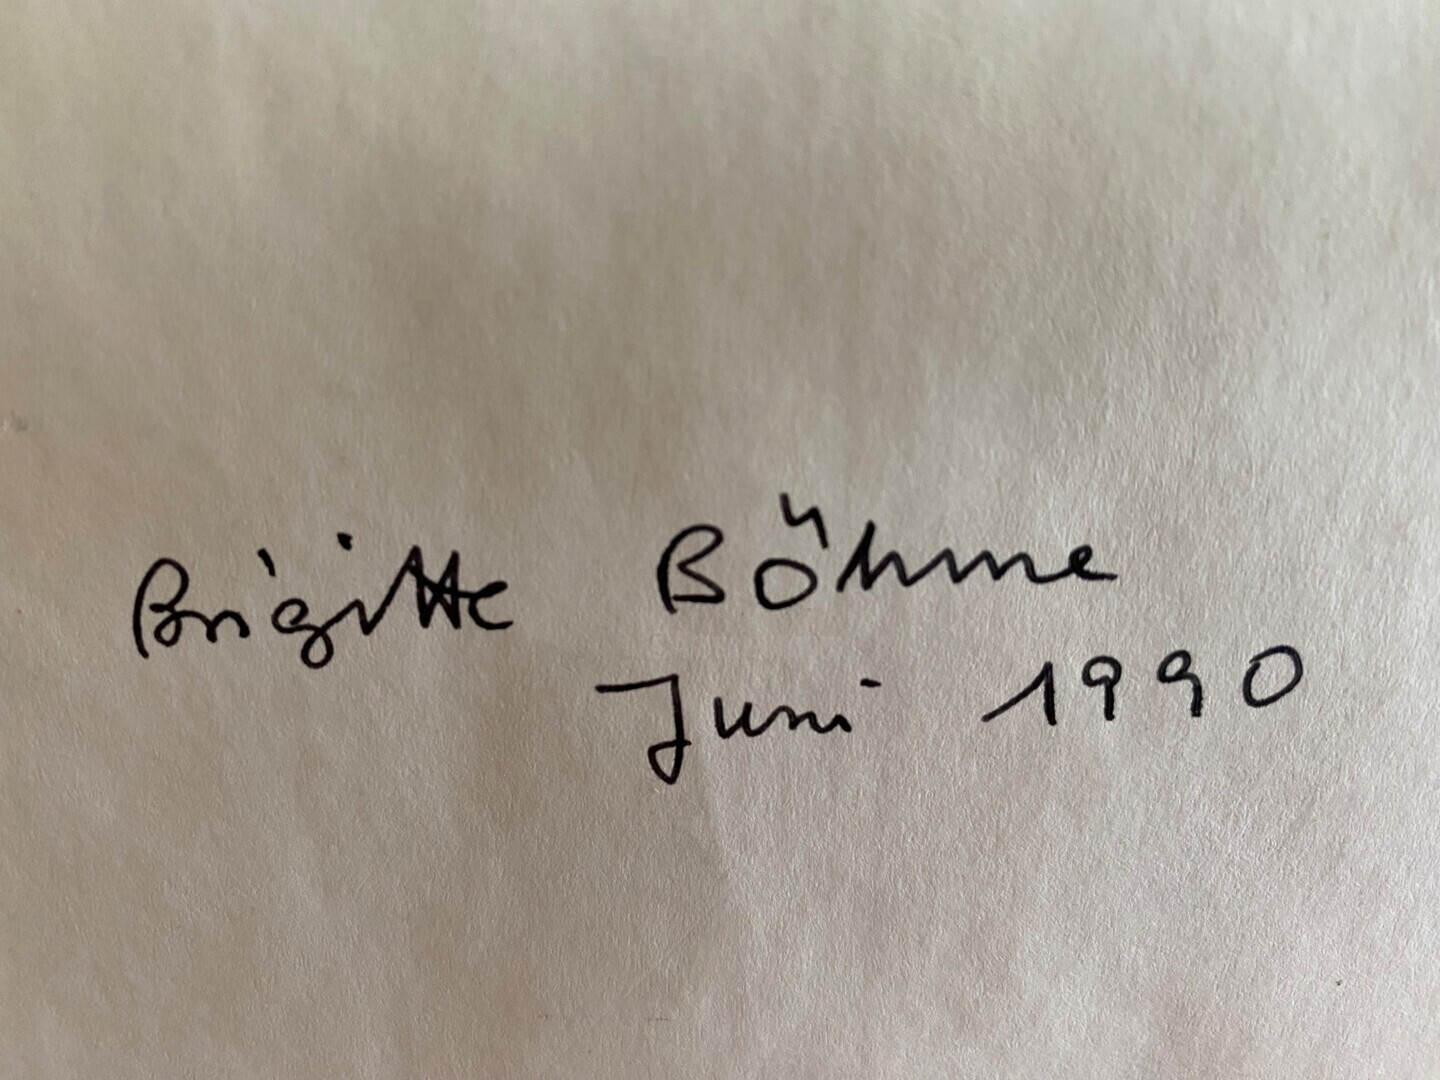 Brigitte Böhme
Juni 1990